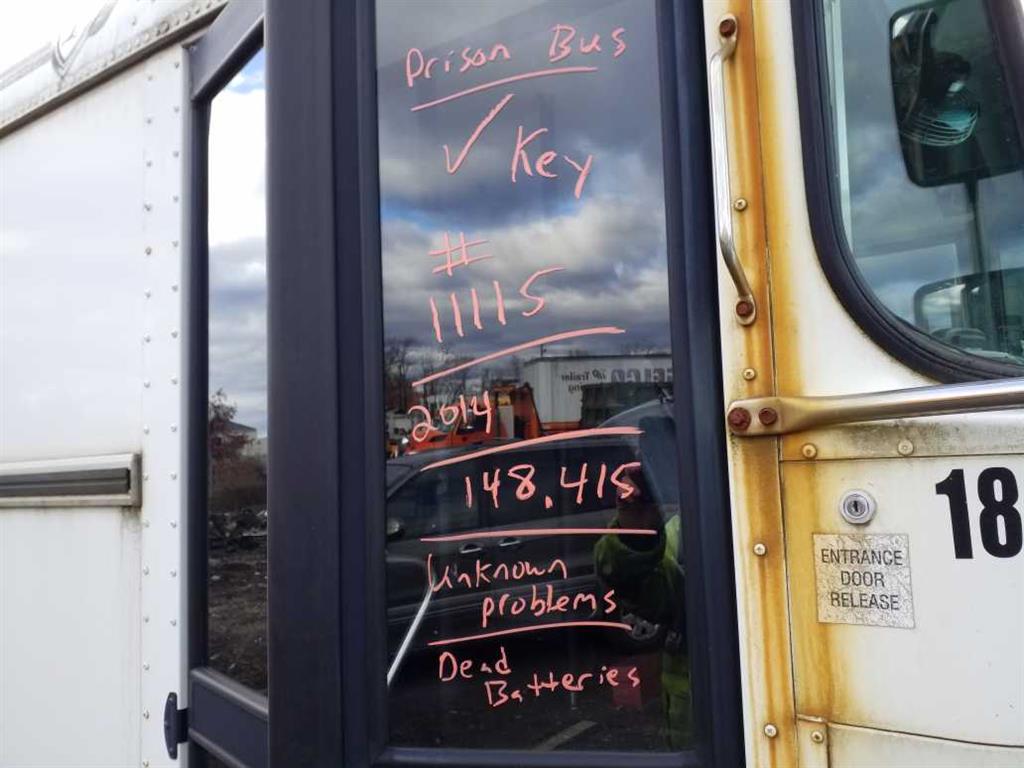 Prison Bus
✓ Key
#
11115
2014
148,415
Unknown
problems
Dead
Batteries
18
ENTRANCE
DOOR
RELEASE